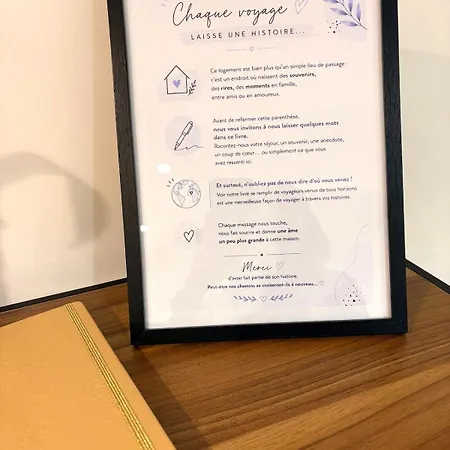 Chaque voyage
LAISSE UNE HISTOIRE...
Ce logement est bien plus qu'un simple lieu de passage :
c'est un endroit où naissent des souvenirs,
des rires, des moments en famille,
entre amis ou en amoureux.
Avant de refermer cette parenthèse,
nous vous invitons à nous laisser quelques mots
dans ce livre.
Racontez-nous votre séjour, un souvenir, une anecdote,
un coup de cœur... ou simplement ce que vous
avez ressenti ici.
Et surtout, n'oubliez pas de nous dire d'où vous venez !
Voir notre livre se remplir de voyageurs venus de tous horizons
est une merveilleuse façon de voyager à travers vos histoires.
Chaque message nous touche,
nous fait sourire et donne une âme
un peu plus grande à cette maison.
Merci
d'avoir fait partie de son histoire.
Peut-être nos chemins se croiseront-ils à nouveau...